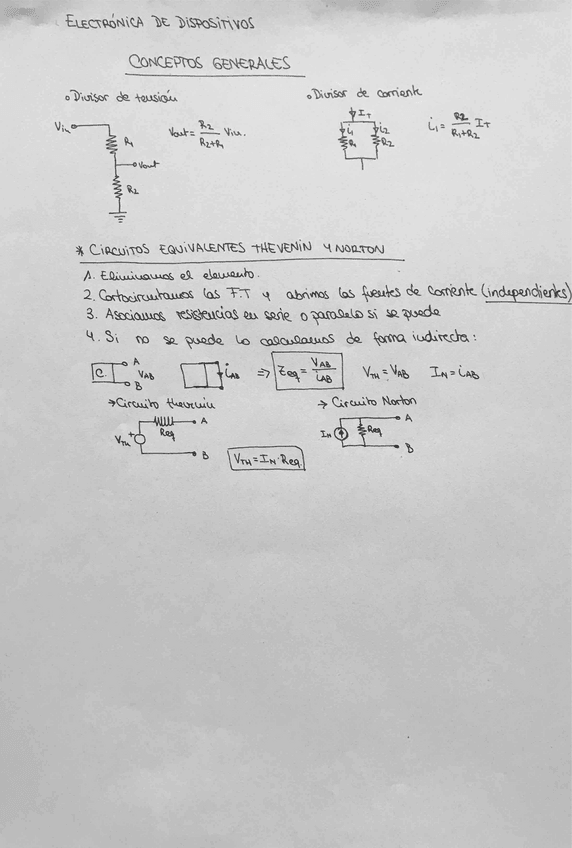 ELECTRÓNICA DE DISPOSITIVOS
CONCEPTOS GENERALES
o Divisor de tensión
Vin
R1
Vout
R2
Vout = R2 / (R2+R1) Vin.
o Divisor de corriente
IT
i1 i2
R1 R2
i1 = R2 / (R1+R2) IT
* CIRCUITOS EQUIVALENTES THEVENIN Y NORTON
1. Eliminamos el elemento.
2. Cortocircuitamos las F.T y abrimos las fuentes de corriente (independientes)
3. Asociamos resistencias en serie o paralelo si se puede
4. Si no se puede lo calculamos de forma indirecta:
C. A VAB B iAB => Zeq = VAB / iAB VTH = VAB IN = iAB
→ Circuito thevenin
VTH + Req A B
VTH = IN · Req.
→ Circuito Norton
IN Req A B